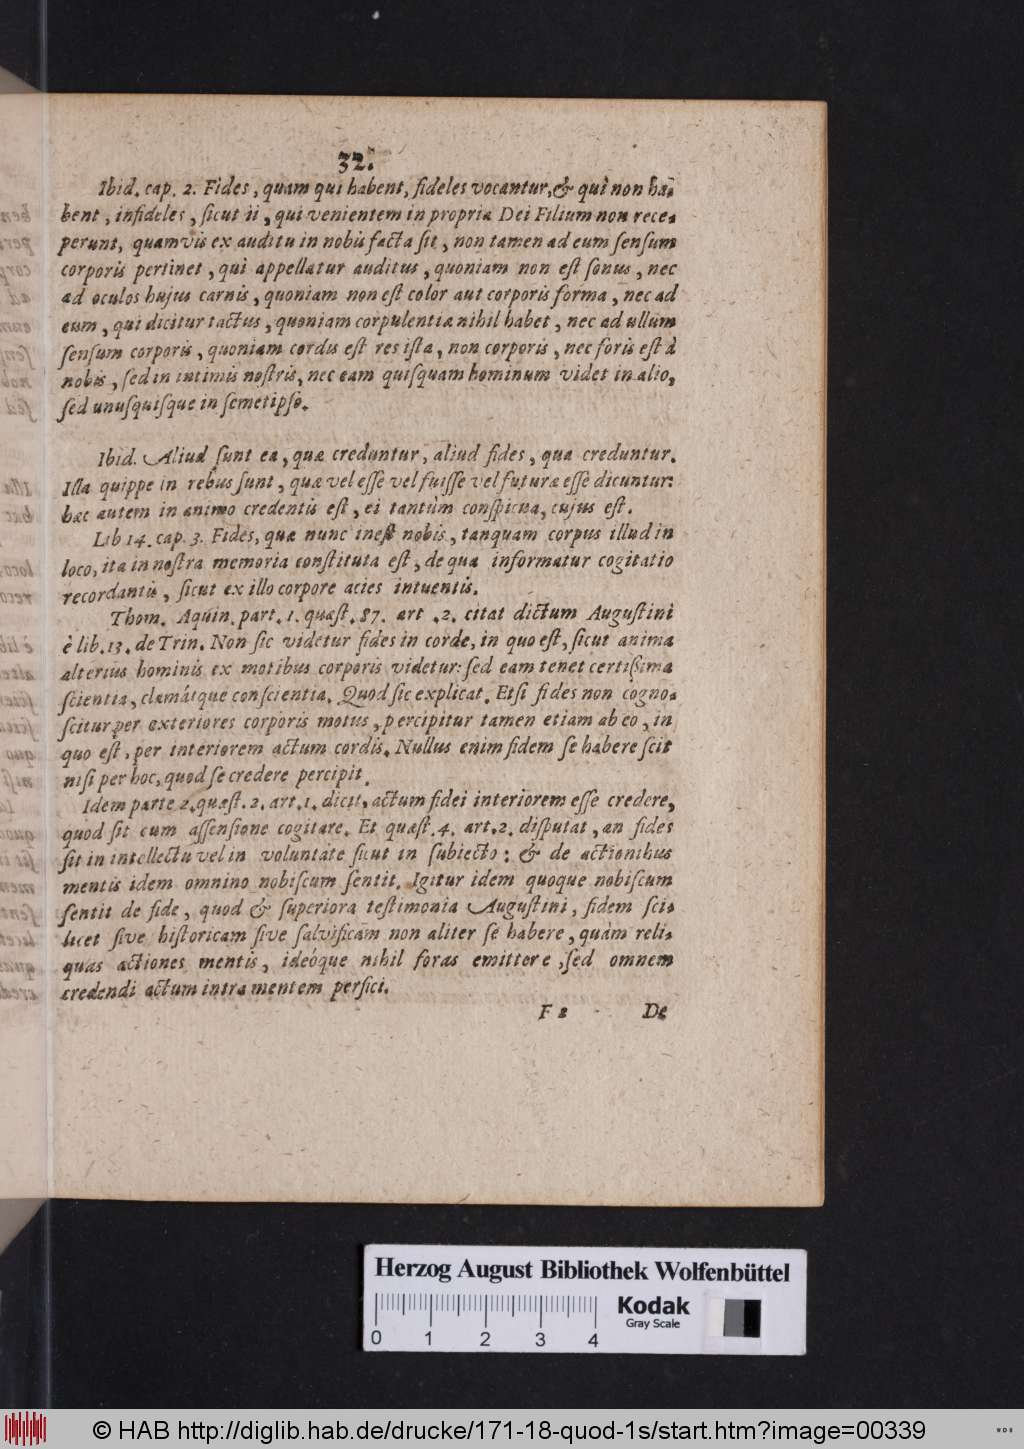 32.
Ibid. cap. 2. Fides, quam qui habent, fideles vocantur, & qui non ha-
bent, infideles, ſicut ii, qui venientem in propria Dei Filium non rece-
perunt, quamvis ex auditu in nobis facta ſit, non tamen ad eum ſenſum
corporis pertinet, qui appellatur auditus, quoniam non eſt ſonus, nec
ad oculos hujus carnis, quoniam non eſt color aut corporis forma, nec ad
eum, qui dicitur tactus, quoniam corpulentia nihil habet, nec ad ullum
ſenſum corporis, quoniam cordis eſt res iſta, non corporis, nec foris eſt à
nobis, ſed in intimis noſtris, nec eam quiſquam hominum videt in alio,
ſed unuſquiſque in ſemetipſo.
Ibid. Aliud ſunt ea, quæ creduntur, aliud fides, qua creduntur.
Illa quippe in rebus ſunt, quæ vel eſſe vel fuiſſe vel futura eſſe dicuntur:
hæc autem in animo credentis eſt, ei tantùm conſpicua, cujus eſt.
Lib 14. cap. 3. Fides, quæ nunc ineſt nobis, tanquam corpus illud in
loco, ita in noſtra memoria conſtituta eſt, de qua informatur cogitatio
recordantis, ſicut ex illo corpore acies intuentis.
Thom. Aquin. part. 1. quæſt. 87. art. 2. citat dictum Auguſtini
è lib. 13. de Trin. Non ſic videtur fides in corde, in quo eſt, ſicut anima
alterius hominis ex motibus corporis videtur: ſed eam tenet certiſſima
ſcientia, clamátque conſcientia. Quod ſic explicat. Etſi fides non cogno-
ſcitur per exteriores corporis motus, percipitur tamen etiam ab eo, in
quo eſt, per interiorem actum cordis. Nullus enim fidem ſe habere ſcit
niſi per hoc, quod ſe credere percipit.
Idem parte 2. quæſt. 2. art. 1. dicit, actum fidei interiorem eſſe credere,
quod ſit cum aſſenſione cogitare. Et quæſt. 4. art. 2. diſputat, an fides
ſit in intellectu vel in voluntate ſicut in ſubiecto: & de actionibus
mentis idem omnino nobiſcum ſentit. Igitur idem quoque nobiſcum
ſentit de fide, quod & ſuperiora teſtimonia Auguſtini, fidem ſci-
licet ſive hiſtoricam ſive ſalvificam non aliter ſe habere, quàm reli-
quas actiones mentis, ideóque nihil foras emittere, ſed omnem
credendi actum intra mentem perfici.
F 2 De
Herzog August Bibliothek Wolfenbüttel
0 1 2 3 4 Kodak
Gray Scale
© HAB http://diglib.hab.de/drucke/171-18-quod-1s/start.htm?image=00339